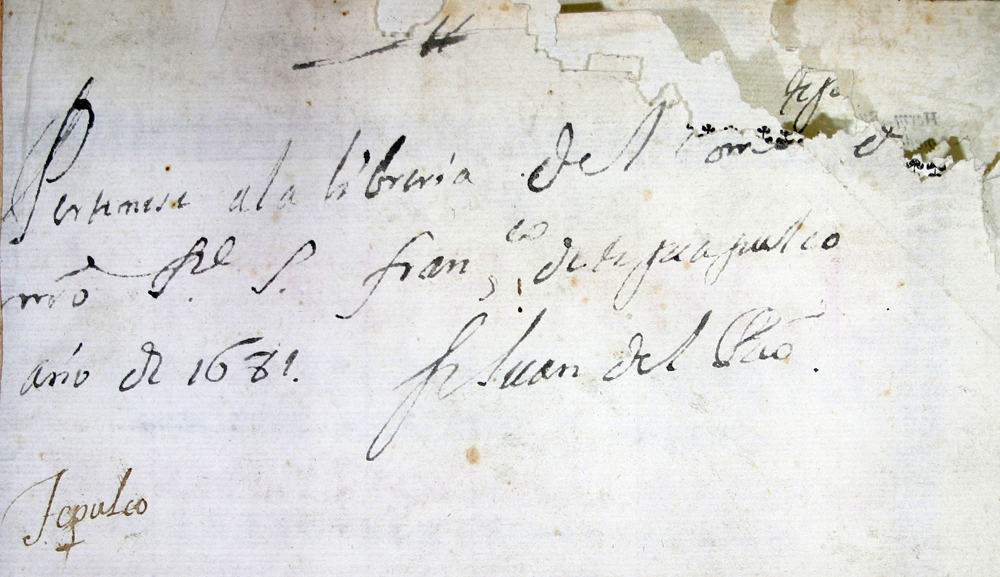 Pertenese a la libreria del comto d
nro Pe S. franco de tepeapulco
año de 1681. fr Juan del
Tepulco